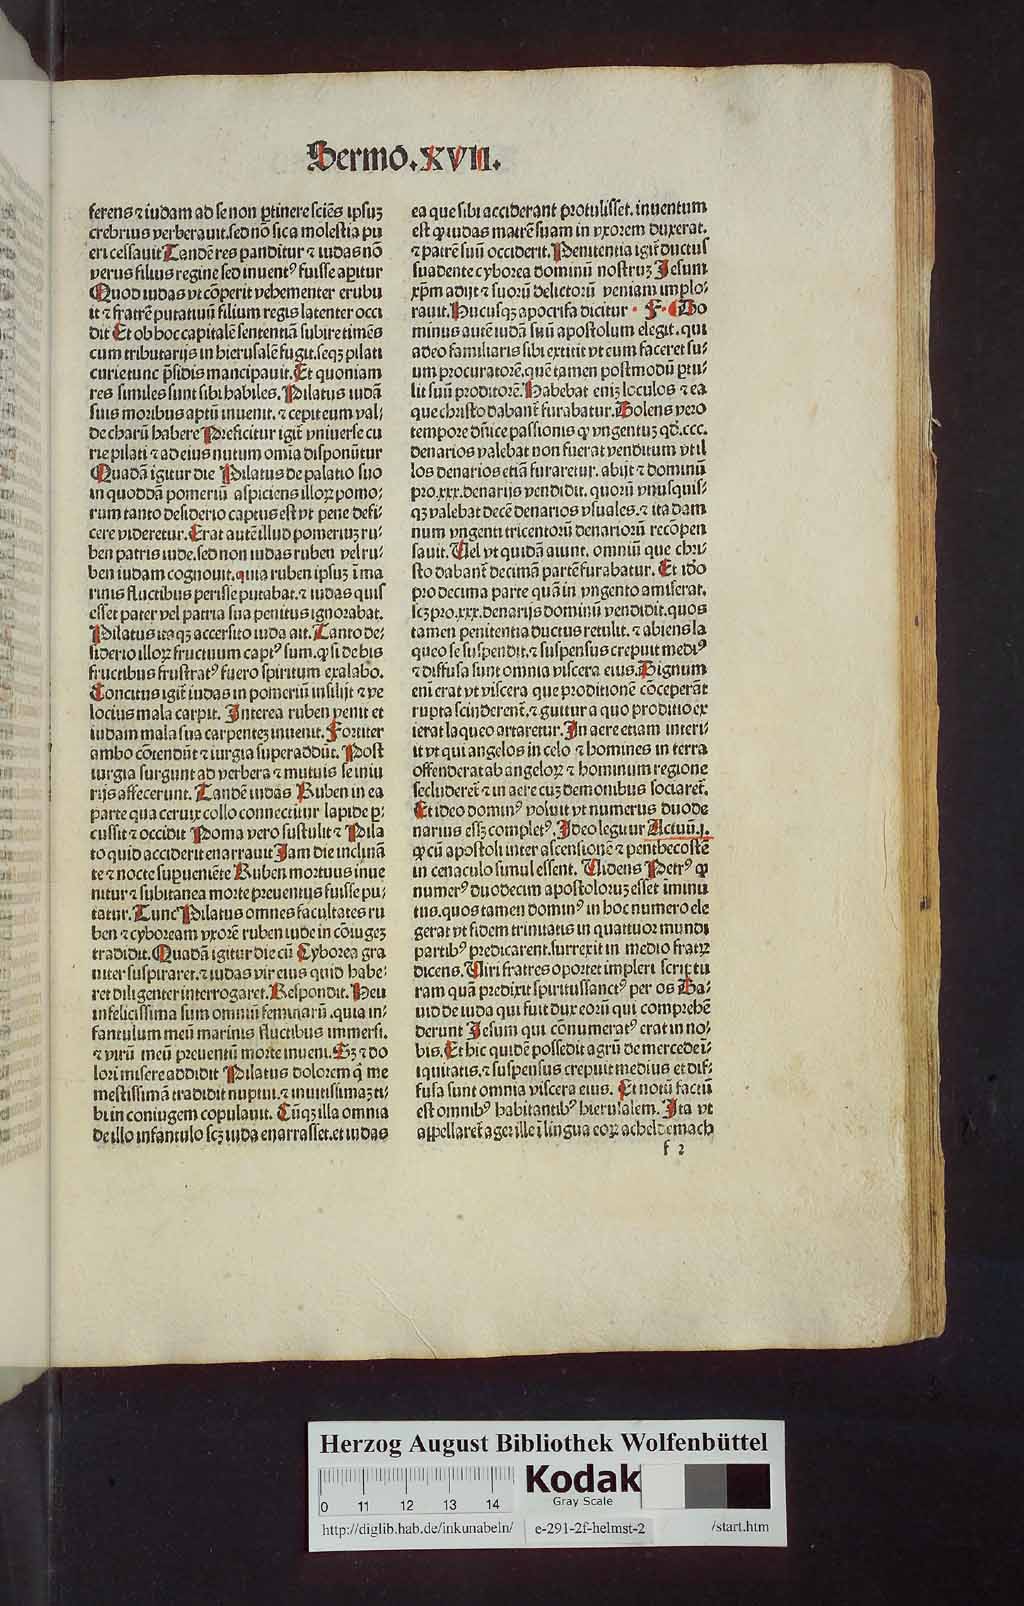 Sermo.XVII.
ferens ⁊ iudam ad se non ꝑtinere sciẽs ipsuꝫ
crebrius verberauit.sed nõ sic a molestia pu
eri cessauit Tandẽ res panditur ⁊ iudas nõ
verus filius regine sed inuentꝰ fuisse apitur
Quod iudas vt cõperit vehementer erubu
it ⁊ fratrẽ putatiuũ filium regis latenter occi
dit Et ob hoc capitalẽ sententiã subire timẽs
cum tributarijs in hierusalẽ fugit.seqꝫ pilati
curie tunc p̃sidis mancipauit. Et quoniam
res similes sunt sibi habiles. Pilatus iudã
suis moribus aptũ inuenit. ⁊ cepit eum val⸗
de charũ habere Preficitur igit̃ vniuerse cu
rie pilati ⁊ ad eius nutum omĩa disponũtur
Quadã igitur die Pilatus de palatio suo
in quoddã pomeriũ aspiciens illoꝝ pomo⸗
rum tanto desiderio captus est vt pene defi⸗
cere videretur. Erat autẽ illud pomeriuꝫ ru⸗
ben patris iude.sed non iudas ruben vel ru⸗
ben iudam cognouit.quia ruben ipsuꝫ ĩ ma
rinis fluctibus perisse putabat.⁊ iudas quis
esset pater vel patria sua penitus ignorabat.
Pilatus itaqꝫ accersito iuda ait. Tanto de⸗
siderio illoꝝ fructuum captꝰ sum.ꝙ si de his
fructibus frustratꝰ fuero spiritum exalabo.
Concitus igit̃ iudas in pomeriũ insilijt ⁊ ve
locius mala carpit. Interea ruben venit et
iudam mala sua carpenteꝫ inuenit. Fortiter
ambo cõtendũt ⁊ iurgia superaddũt. Post
iurgia surgunt ad verbera ⁊ mutuis se iniu
rijs affecerunt. Tandẽ iudas Ruben in ea
parte qua ceruix collo connectitur lapide ꝑ⸗
cussit ⁊ occidit Poma vero sustulit ⁊ Pila
to quid acciderit enarrauit Iam die inclinã
te ⁊ nocte supueniẽte Ruben mortuus inue
nitur ⁊ subitanea morte preuentus fuisse pu⸗
tatur. Tunc Pilatus omnes facultates ru
ben ⁊ cyboream vxorẽ ruben iude in cõiugeꝫ
tradidit. Quadã igitur die cũ Cyborea gra
uiter suspiraret.⁊ iudas vir eius quid habe⸗
ret diligenter interrogaret. Respondit. Heu
infelicissima sum omniũ feminarũ.quia in⸗
fantulum meũ marinis fluctibus immersi.
⁊ virũ meũ preuentũ morte inueni. Sꝫ ⁊ do
lori misere addidit Pilatus dolorem q̇ me
mestissimã tradidit nuptui.⁊ inuitissimaꝫ ti⸗
bi in coniugem copulauit. Cũqꝫ illa omnia
de illo infantulo scꝫ iuda enarrasset.et iudas
ea que sibi acciderant protulisset. inuentum
est ꝙ iudas matrẽ suam in vxorem duxerat.
⁊ patrẽ suũ occiderit. Penitentia igit̃ ductus
suadente cyborea dominũ nostruꝫ Jesum
xp̃m adijt ⁊ suorũ delictorũ veniam implo⸗
rauit. Hucusqꝫ apocrifa dicitur · F · Do
minus autẽ iudã suũ apostolum elegit. qui
adeo familiaris sibi extitit vt eum faceret su⸗
um procuratorẽ.quẽ tamen postmodũ ꝑtu⸗
lit suũ proditorẽ. Habebat eniꝫ loculos ⁊ ea
que christo dabant̃ furabatur. Dolens vero
tempore dñice passionis ꝙ vngentuꝫ qd̃.ccc.
denarios valebat non fuerat venditum vt il
los denarios etiã furaretur. abijt ⁊ dominũ
pro.xxx.denarijs vendidit. quorũ vnusquis⸗
qꝫ valebat decẽ denarios vsuales.⁊ ita dam
num vngenti tricentorũ denariorũ recõpen
sauit. Vel vt quidã aiunt. omniũ que chri⸗
sto dabant̃ decimã partẽ furabatur. Et idõ
pro decima parte quã in vngento amiserat.
scꝫ pro.xxx.denarijs dominũ vendidit.quos
tamen penitentia ductus retulit.⁊ abiens la
queo se suspendit.⁊ suspensus crepuit mediꝰ
⁊ diffusa sunt omnia viscera eius. Dignum
enĩ erat vt viscera que proditionẽ cõceperãt
rupta scinderent̃.⁊ guttur a quo proditio ex
ierat laqueo artaretur. In aere etiam interi⸗
it vt qui angelos in celo ⁊ homines in terra
offenderat ab angeloꝝ ⁊ hominum regione
secluderet̃ ⁊ in aere cuꝫ demonibus sociaret̃.
Et ideo dominꝰ voluit vt numerus duode
narius essꝫ completꝰ. Ideo legitur Actuũ.j.
ꝙ cũ apostoli inter ascensionẽ ⁊ penthecostẽ
in cenaculo simul essent. Videns Petrꝰ ꝙ
numerꝰ duodecim apostoloruꝫ esset ĩminu
tus.quos tamen dominꝰ in hoc numero ele
gerat vt fidem trinitatis in quattuor mundi
partibꝰ predicarent.surrexit in medio fratꝝ
dicens. Viri fratres oportet impleri scriptu
ram quã predixit spiritussanctꝰ per os Da⸗
uid de iuda qui fuit dux eorũ qui comprehẽ
derunt Jesum qui cõnumeratꝰ erat in no⸗
bis. Et hic quidẽ possedit agrũ de mercede ĩ⸗
iquitatis.⁊ suspensus crepuit medius et dif⸗
fusa sunt omnia viscera eius. Et notũ factũ
est omnibꝰ habitantibꝰ hierusalem. Ita vt
appellaret̃ ager ille ĩ lingua eoꝝ acheldemach
f 2
Herzog August Bibliothek Wolfenbüttel
0 11 12 13 14
Kodak
Gray Scale
http://diglib.hab.de/inkunabeln/ e-291-2f-helmst-2 /start.htm